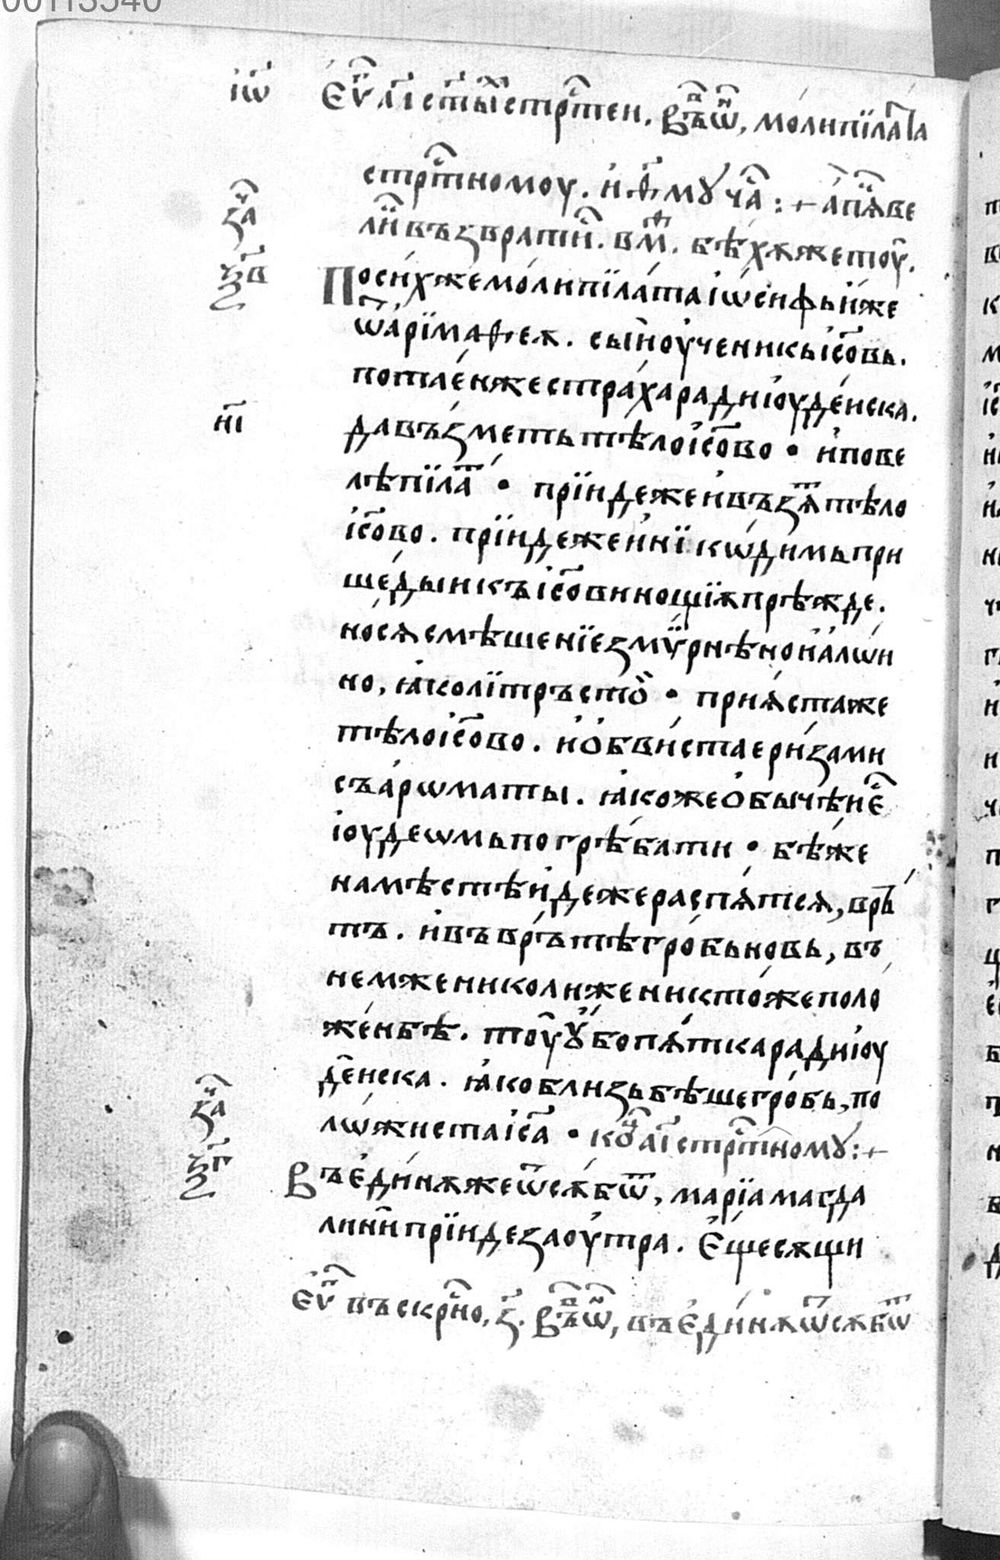 00113540
іѡ҃ еѵ҃ лі҃ ст҃ыⷯ стрⷭ҇тен. въⷣ ѿ, моли пїлаⷮа
стрⷭ҇тномоу. и҆ ѳ҃. мꙋ чаⷭ҇ :+
лїи въꙁвратиⷭ҇. в м҃ѳ. бѣхѫже тоу҆.
По сихже моли пїлата іѡ҆сифь и҆же
ѿ а҆рїмаѳеѧ. сыи оу҆ченикь іс҃овь.
потаенже страха ради і҆оуде́иска.
да въꙁметь тѣло і҆с҃ово • и҆ пове
лѣ пїлаⷮ • прїиде же и҆ въꙁѧⷮ тѣло
і҆с҃ово. прїиде же и҆ нїкѡдимь при
шедыи къ і҆с҃ови нощїѫ прѣжде.
носѧ смѣшенїе ꙁмѵ҆рнѣно и҆ алѡи
но, ꙗ҆ко литръ сто • прїѧста же
тѣло і҆с҃ово. и҆ ѻ҆бвиста е риꙁами
съ а҆рѡматы. ꙗ҆коже ѻ҆бычѣи еⷭ҇
і҆оудеѡмь погрѣбати • бѣ же
на мѣстѣ и҆деже распѧтсѧ, врь
тъ. и҆ въ врьтѣ гробь новь, въ
немже николиже никтоже поло
жен бѣ. тоу ꙋ҆бо пѧтка ради і҆оу
деиска. ꙗ҆ко близь бѣше гробь, по
лѡжиста і҆с҃а • коⷩ҇ аі҃ стрⷭ҇тномꙋ :+
Въ е҆динѫ же ѿ сѫбѿ, марїа магда
линїи прїиде ꙁаоу҆тра. Е҆ще сѫщи
еѵ҃ въскрⷭ҇но, ꙁ҃. въⷣ ѿ, въ е҆динѫ ѿ сѫбѿ